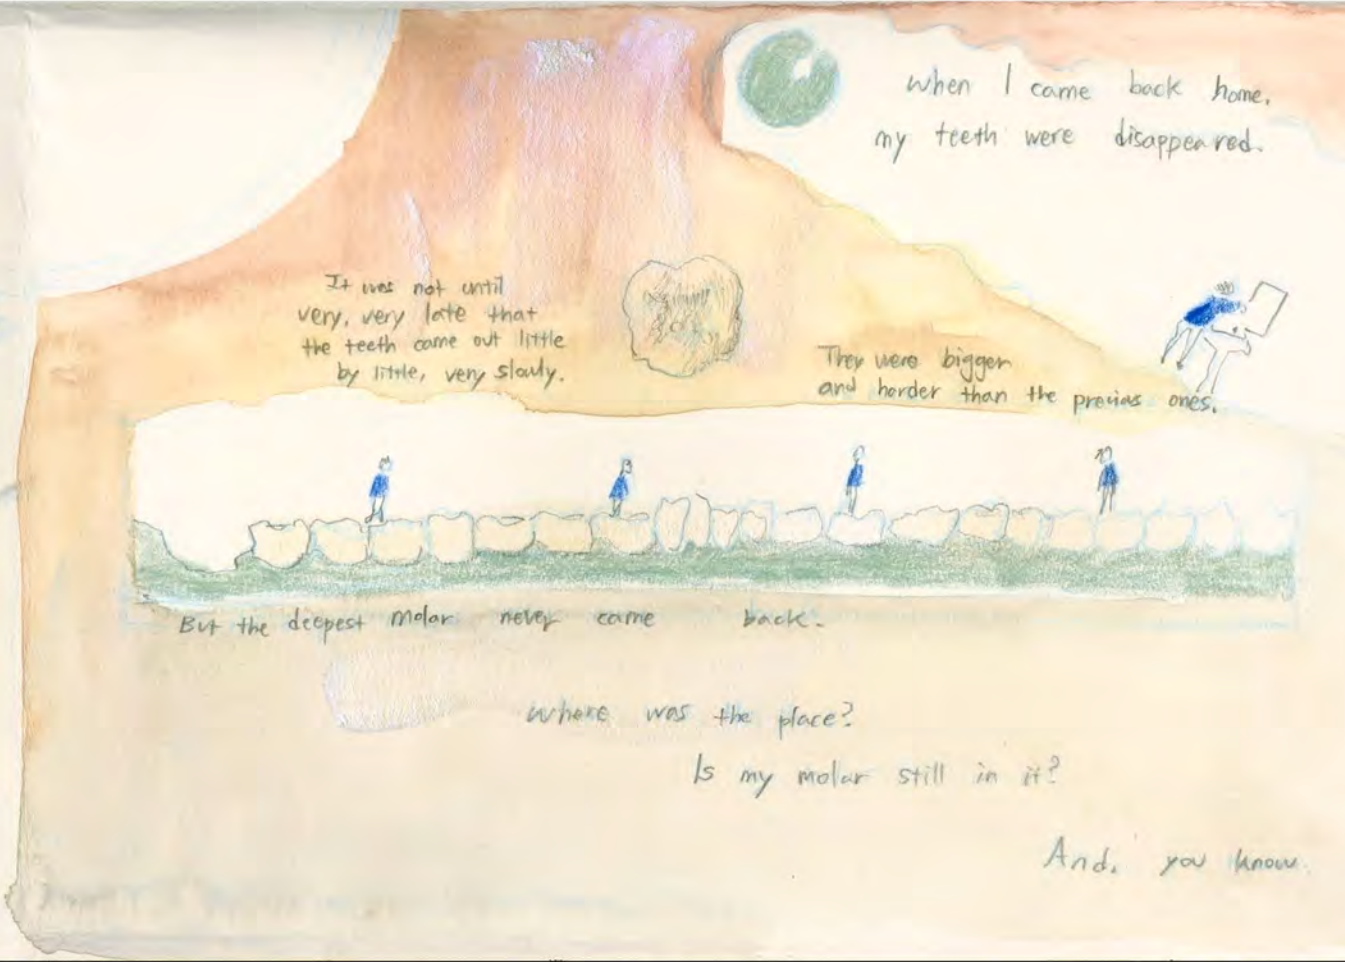 when I came back home,
my teeth were disappeared.
It was not until
very, very late that
the teeth came out little
by little, very slowly.
They were bigger
and harder than the previous ones.
But the deepest molar never came back.
Where was the place?
Is my molar still in it?
And, you know.